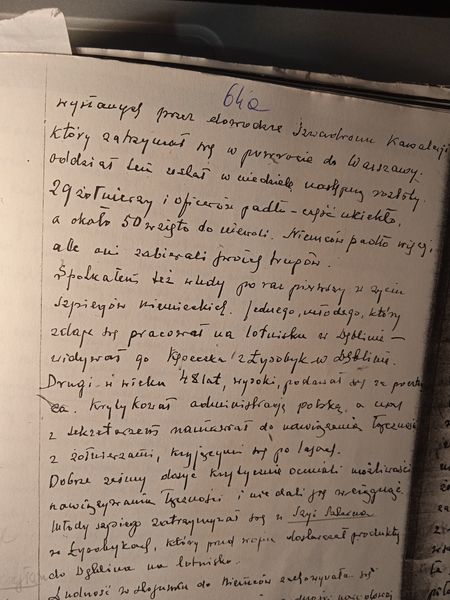 64a
wysłanych przez dowódcę szwadronu Kawalerji
który zatrzymał się w przemarszu do Warszawy.
oddział ten został w niedzielę następną rozbity.
29 żołnierzy i oficerów padło – część uciekła,
a około 50 wzięto do niewoli. Niemców padło więcej,
ale oni zabierali swoich trupów.
Spotkałem też wtedy po raz pierwszy w życiu
szpiegów niemieckich. Jednego, młodego, który
zdaje się pracował na lotnisku w Dęblinie –
widywał go Kpeczka z Łysobyk w Dęblinie.
Drugi w wieku 48 lat, wysoki, podawał się za
Krytykował administrację polską, a nas
z sekretarzem namawiał do nawiązania łączności
z żołnierzami, kryjącymi się po lasach.
Dobrze żeśmy dosyć krytycznie oceniali możliwości
nawiązywania łączności i nie dali się wciągnąć.
Młody szpieg zatrzymywał się u
w Łysobykach, który przed wojną dostarczał produkty
do Dęblina na lotnisko.
Ludność w stosunku do Niemców zachowywała się